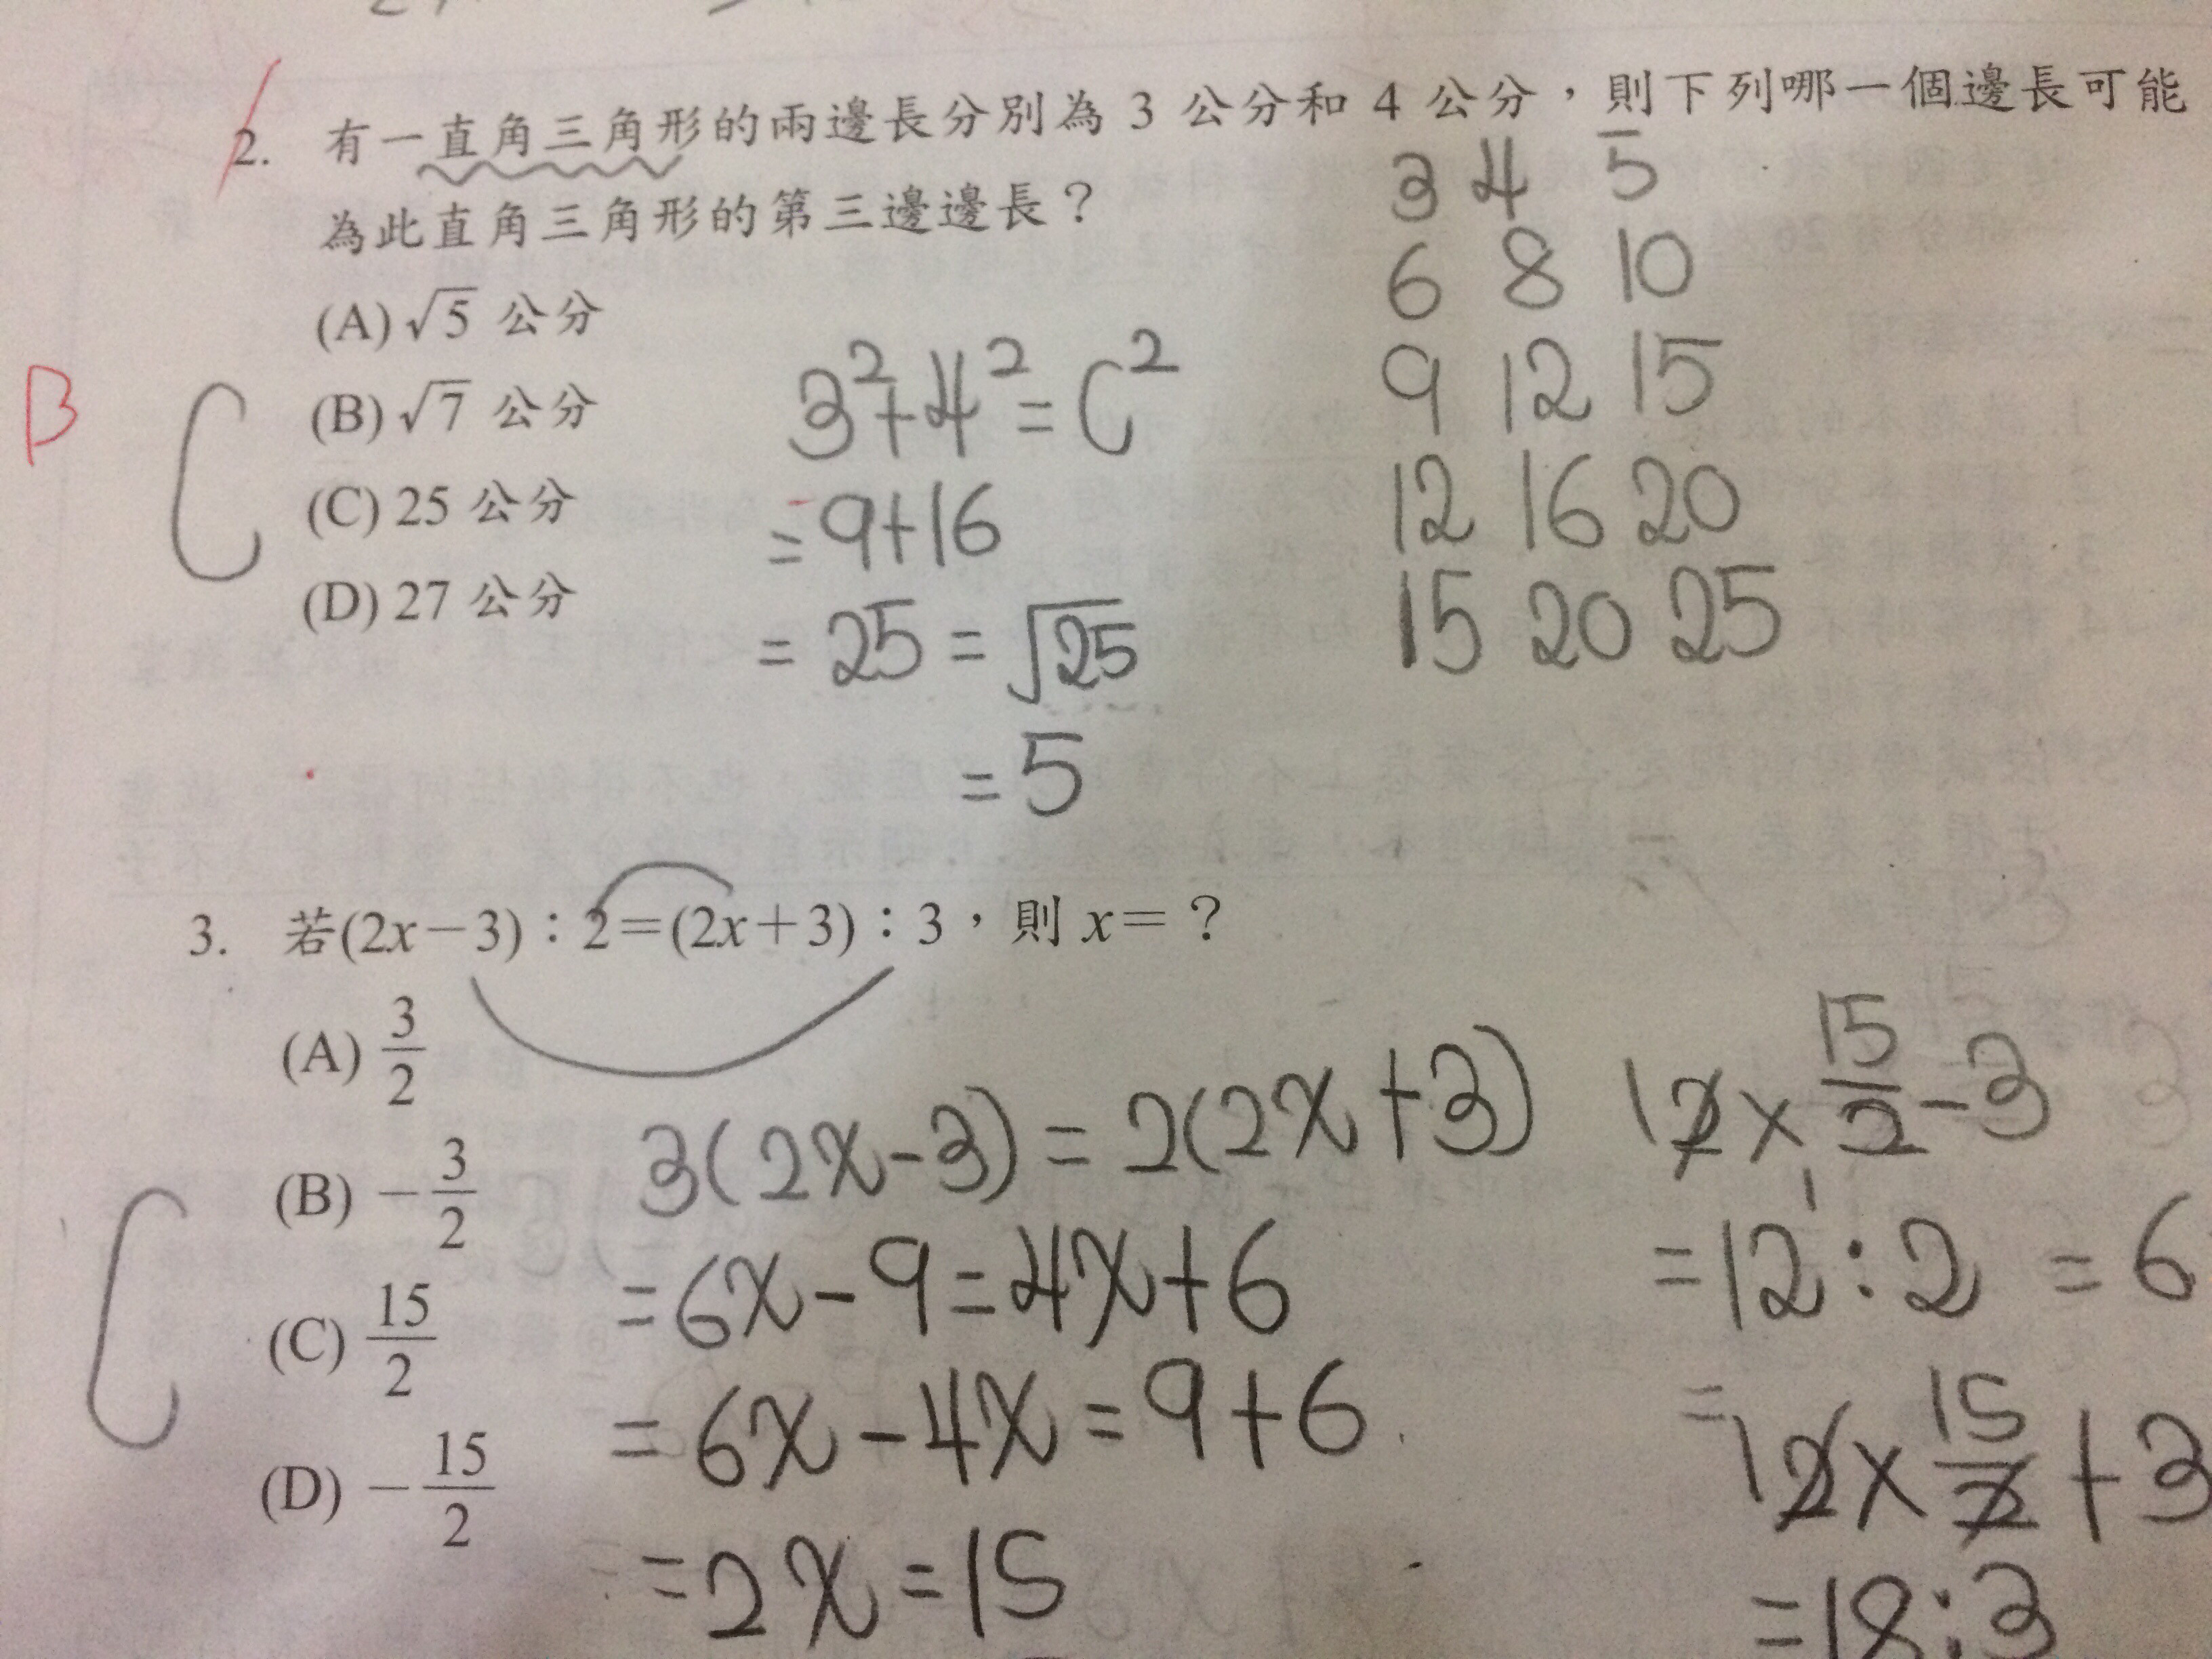 2. 有一直角三角形的兩邊長分別為 3 公分和 4 公分，則下列哪一個邊長可能
為此直角三角形的第三邊邊長？
(A) √5 公分
(B) √7 公分
(C) 25 公分
(D) 27 公分
B
C
3²+4²=C²
=9+16
=25=√25
=5
3 4 5
6 8 10
9 12 15
12 16 20
15 20 25
3. 若(2x－3)：2＝(2x＋3)：3，則 x＝？
(A) 3/2
(B) －3/2
(C) 15/2
(D) －15/2
C
3(2x-3)=2(2x+3)
=6x-9=4x+6
=6x-4x=9+6
=2x=15
1 2×15/2-3
1
=12:2=6
=1 2×15/2+3
=18:3